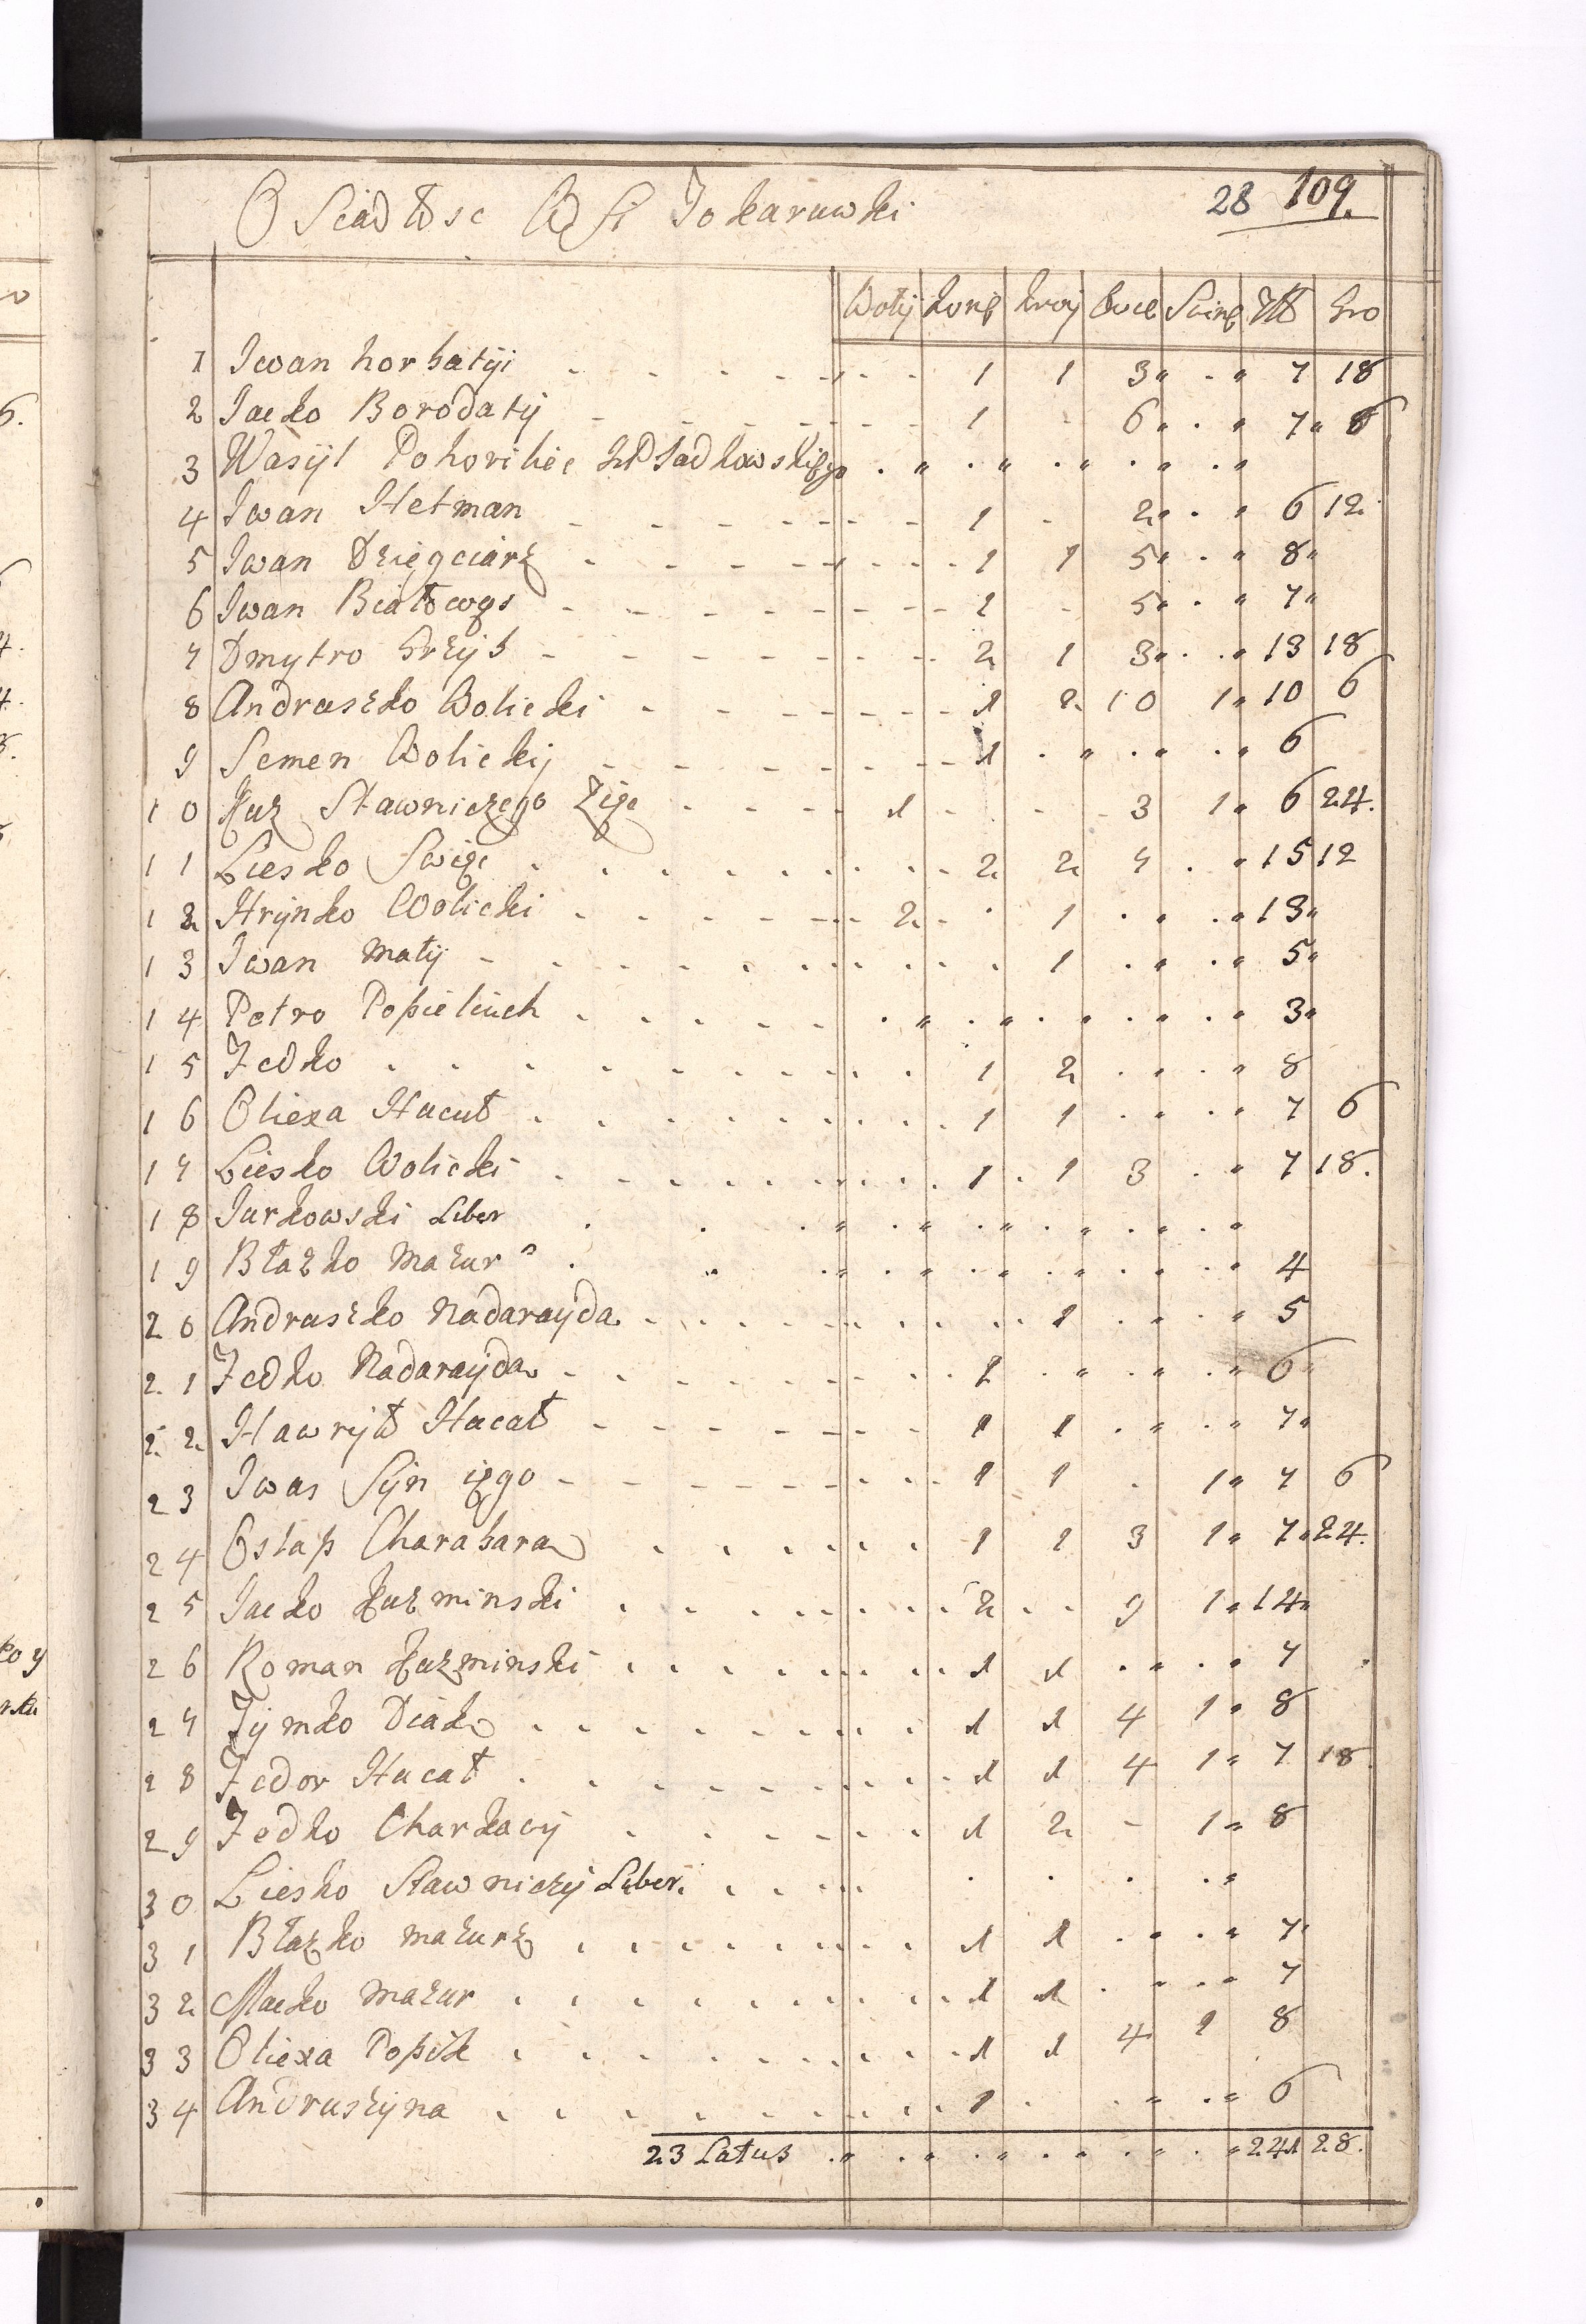 Osiadłosc Wsi Tokaruwki 28 109.
Wołÿ konie krowÿ owce Swinie Złł Gro
1 Iwan horbatÿi 1 1 3 7 18
2 Iacko Borodatÿ 1 6 7 6
3 Wasÿl Pohorilec JP Sadkowskiego
4 Iwan Hetman 1 2 6 12
5 Iwan Dziegciarz 1 1 5 8
6 Iwan Białowąs 1 5 7
7 Dmytro Grzÿb 2 1 3 13 18
8 Andruszko Wolicki 1 2 10 1 10 6
9 Semen Wolickij 1 6
10 Łuz Stawniczego Zięc 1 3 1 6 24.
11 Liesko Swięc 2 2 7 15 12
12 Hrÿnko Wolicki 2 1 13
13 Iwan Małÿ 1 5
14 Petro Popieliuch 3
15 Fedko 1 2 8
16 Oliexa Hucuł 1 1 7 6
17 Liesko Wolicki 1 1 3 7 18.
18 Iurkowski Liber
19 Błazko Mazur 4
20 Andruszko Nadarayda 1 5
21 Fedko Nadaraÿda 1 6
22 Hawrÿł Hucał 1 1 7
23 Iwas Sÿn iego 1 1 1 7 6
24 Ostap Charabara 1 1 3 1 7 24.
25 Iacko Kuzminski 2 9 1 14
26 Roman Kuzminski 1 1 7
27 Tÿmko Diak 1 1 4 1 8
28 Fedor Hucał 1 1 4 1 7 18
29 Fedko Charkacÿ 1 2 1 8
30 Liesko Stawniczÿ Liber
31 Błazko Mazurz 1 1 7
32 Macko Mazur 1 1 7
33 Oliexa Popik 1 1 4 1 8
34 Andruszÿna 1 6
23 Latus 241 28.